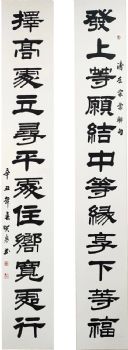 清左宗棠聯句
發上等願結中等緣享下等福
擇高處立尋平處住嚮寬處行
辛丑